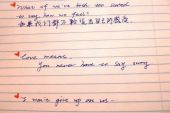 What if we're both too scared
to say how we feel?
如果我们都不敢说出我的感觉
Love means
You never have to say sorry
I won't give up on us